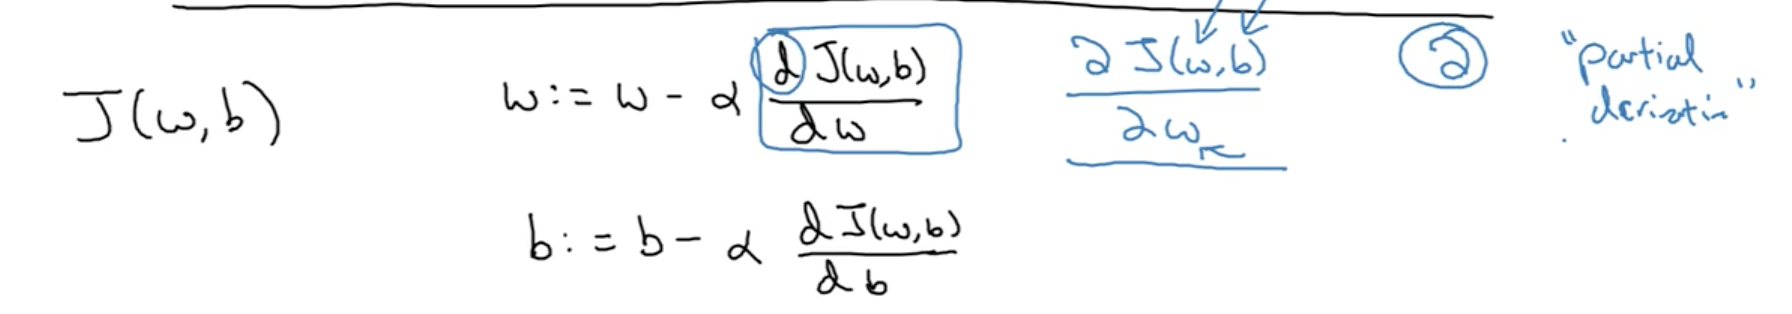 J(w,b)
w := w - α d J(w,b) / d w
∂ J(w,b) / ∂ w
∂
"partial
derivative"
b := b - α d J(w,b) / d b